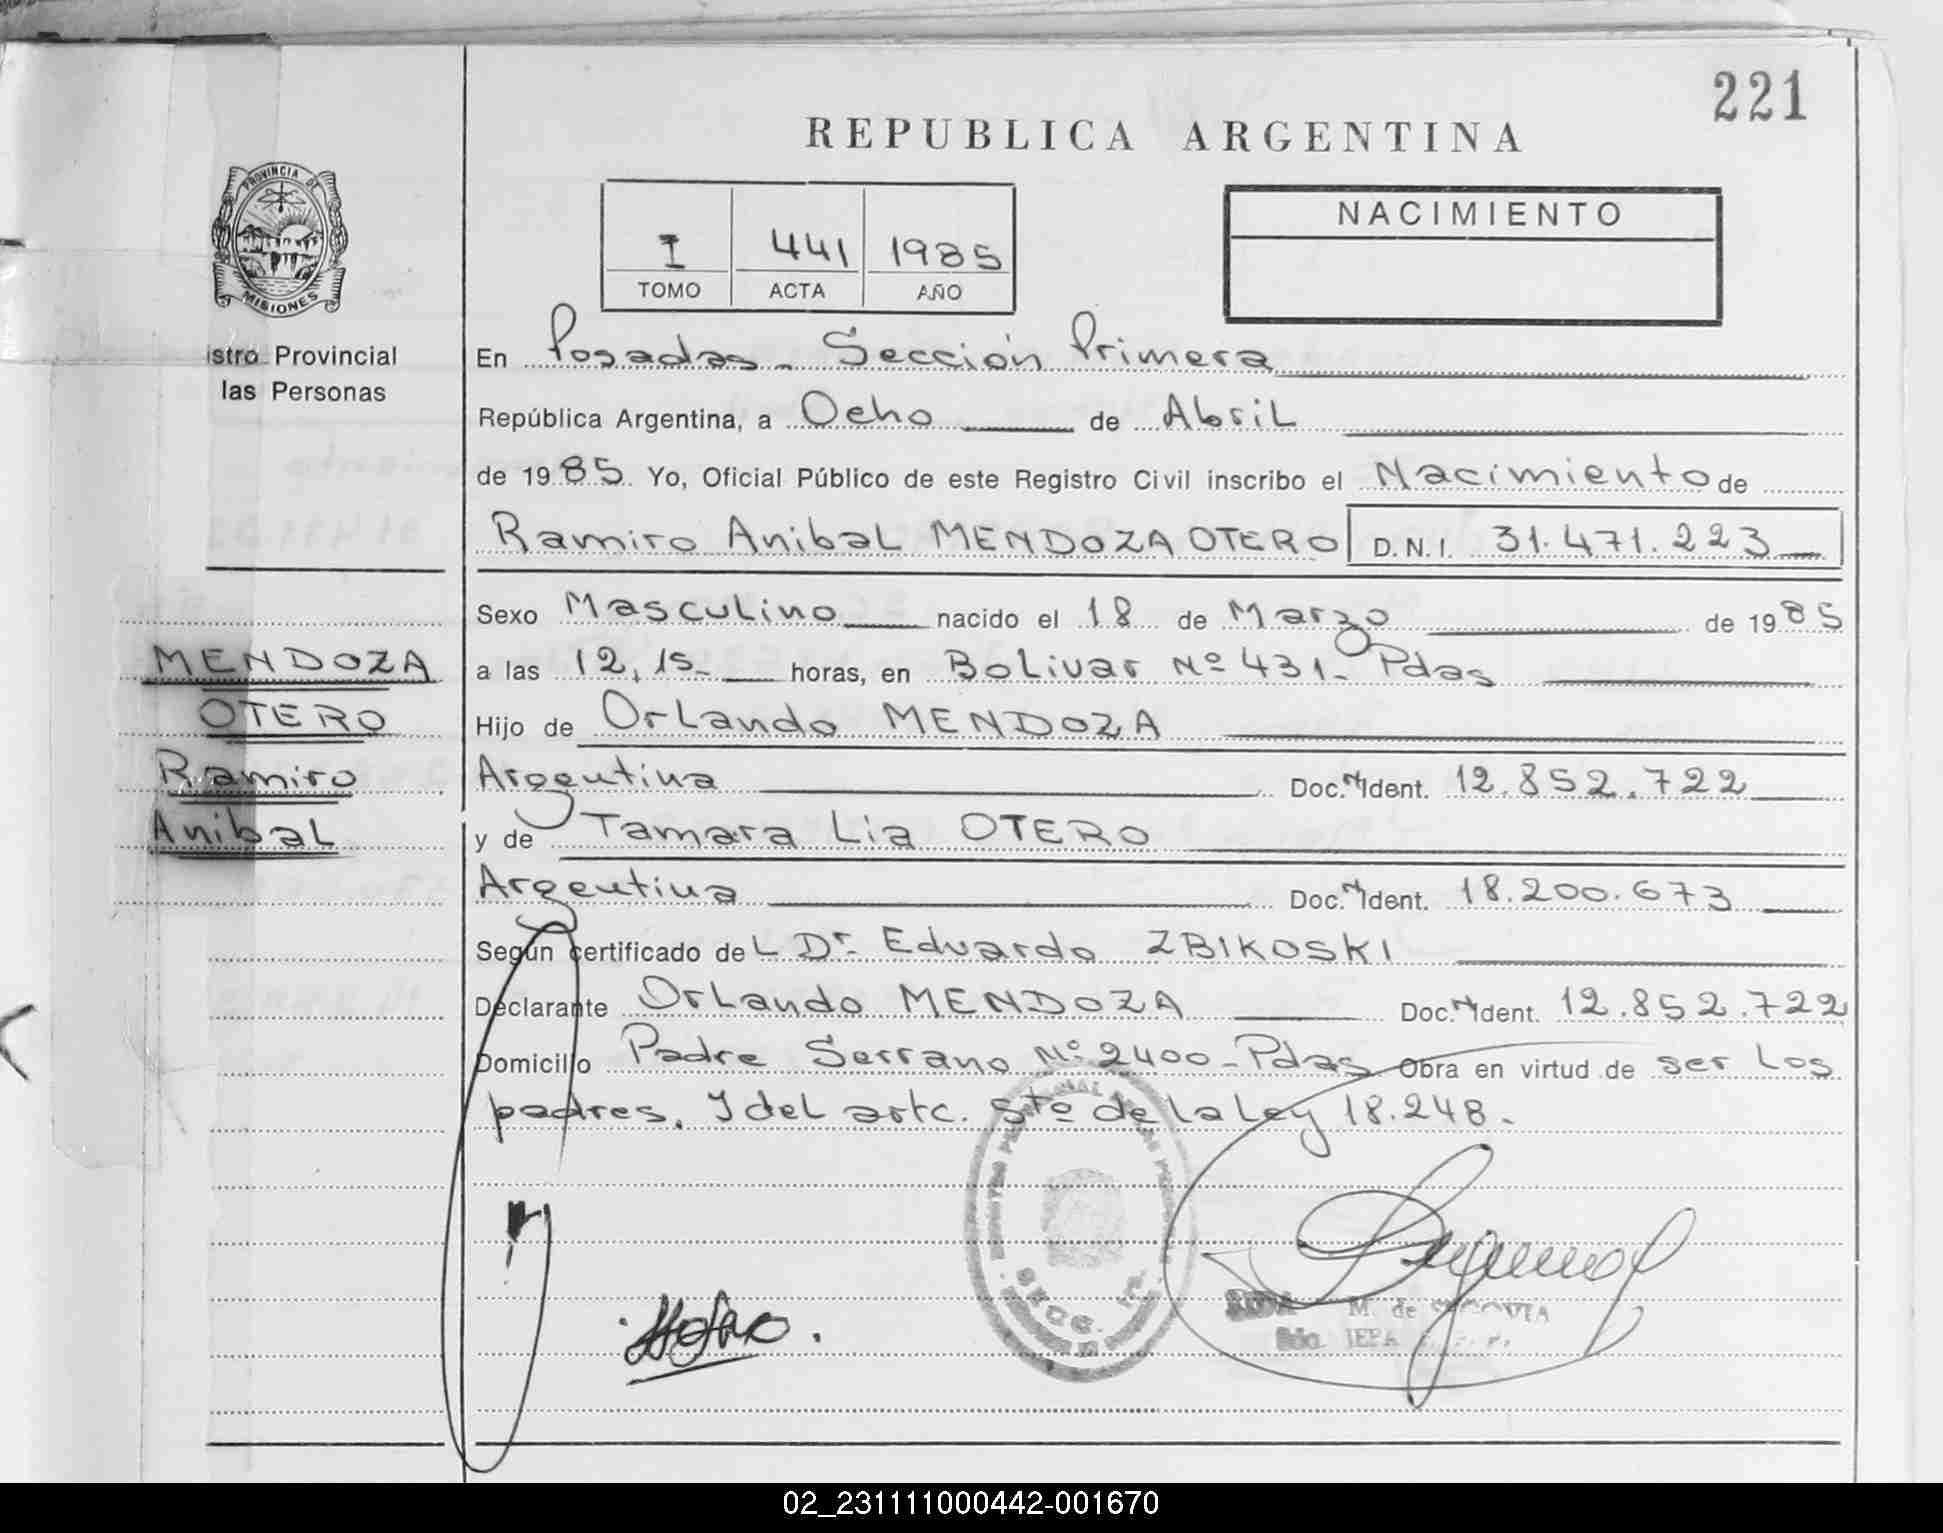 221
REPUBLICA ARGENTINA
PROVINCIA DE
MISIONES
I 441 1985
TOMO ACTA AÑO
NACIMIENTO
istro Provincial
las Personas
En Posadas - Sección Primera
República Argentina, a Ocho de Abril
de 1985 Yo, Oficial Público de este Registro Civil inscribo el Nacimiento de
Ramiro Anibal MENDOZA OTERO D.N.I. 31.471.223
Sexo Masculino nacido el 18 de Marzo de 1985
MENDOZA
OTERO
Ramiro
Anibal
a las 12,15 horas, en Bolivar Nº 431- Pdas
Hijo de Orlando MENDOZA
Argentina Doc. Ident. 12.852.722
y de Tamara Lia OTERO
Argentina Doc. Ident. 18.200.673
Según certificado del Dr. Eduardo ZBIKOSKI
Declarante Orlando MENDOZA Doc. Ident. 12.852.722
Domicilio Padre Serrano Nº 2400-Pdas Obra en virtud de ser los
padres. Y del artc. 5to de la Ley 18.248.
SECC.
M. de
02_231111000442-001670